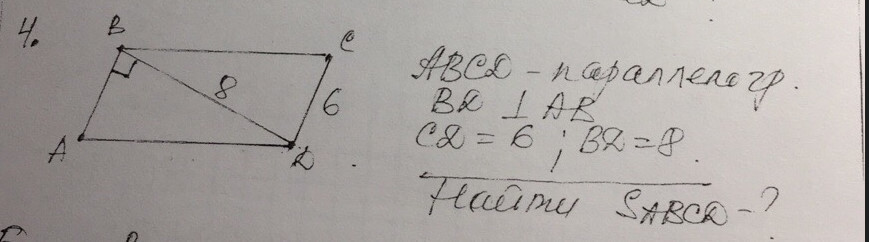 4.
B
C
8
6
A
D
ABCD - параллелогр.
BD ⊥ AB
CD = 6 ; BD = 8.
Найти SABCD - ?